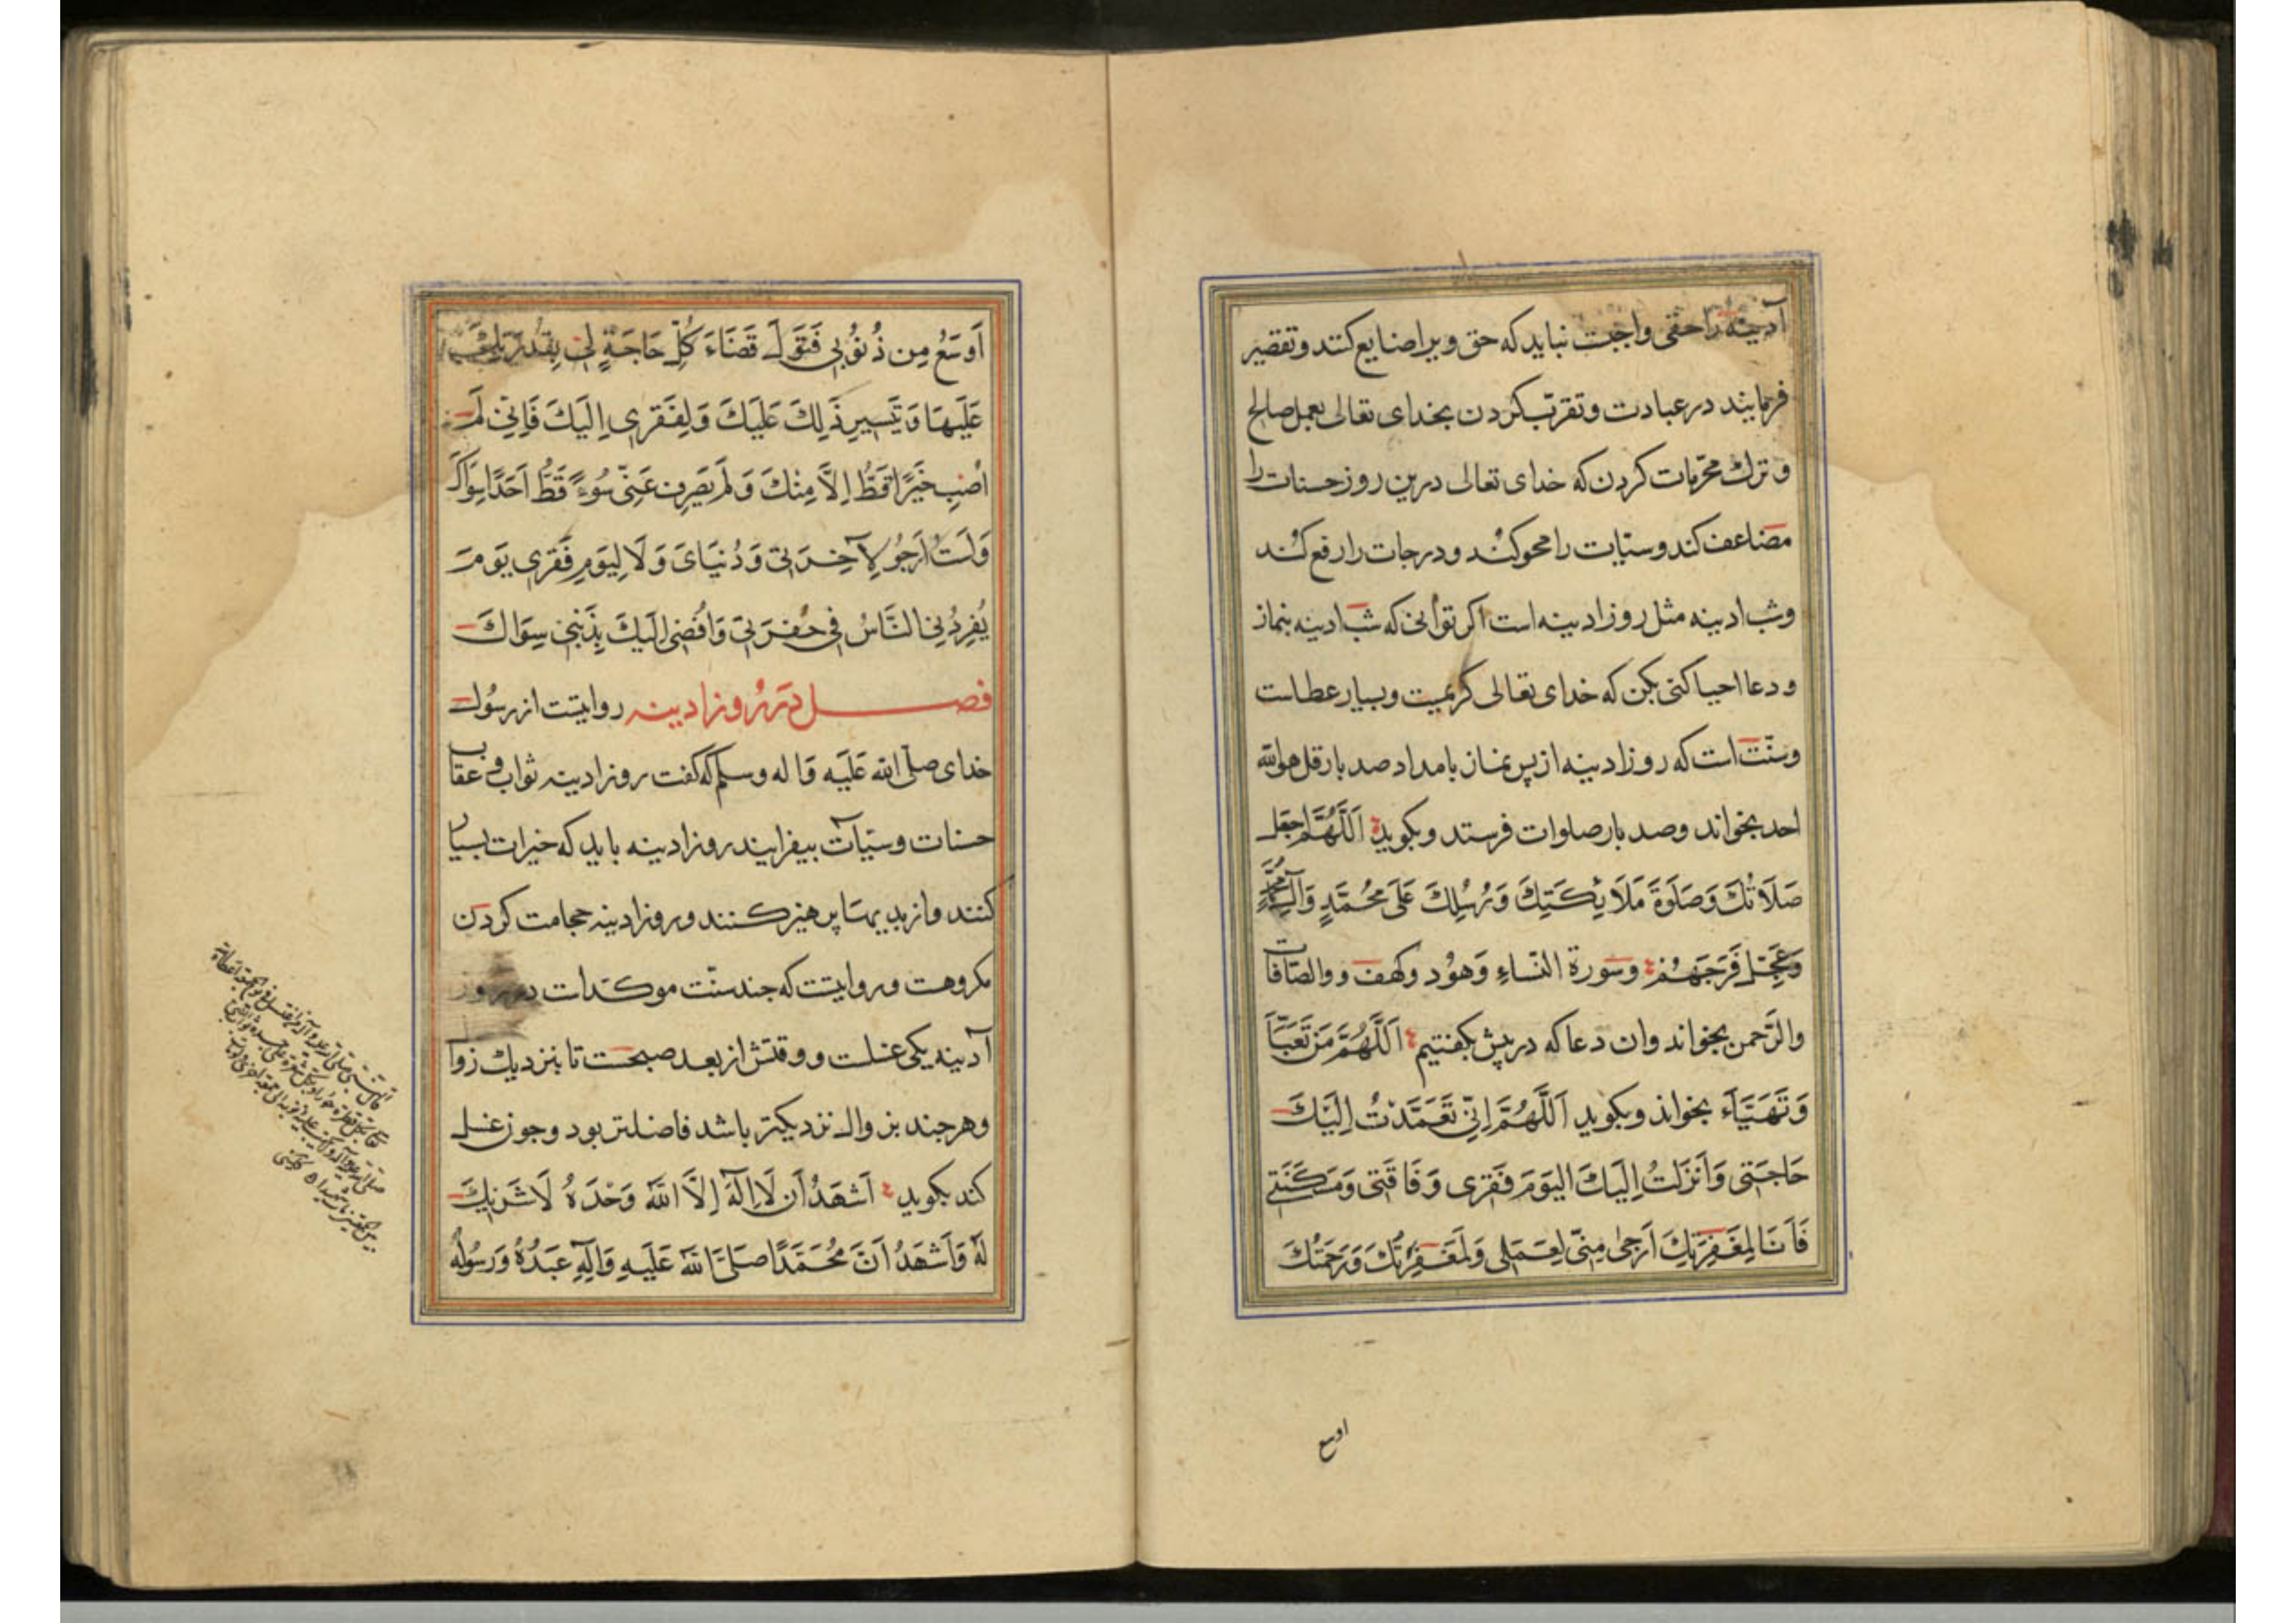 آدینه را حقی واجبت نباید که حق ویرا ضایع کنند و تقصیر
فرمایند در عبادت و تقرّب کردن بخدای تعالی بعمل صالح
و ترك محرّمات کردن که خدای تعالی درین روز حسنات را
مضاعف کند و سیّیات را محو کند و درجات را رفع کند
وشب ادینه مثل روز ادینه است اکر توانی که شب ادینه بنماز
و دعا احیا کنی بکن که خدای تعالی کریمیت وبسیار عطاست
وسنّت است که روز ادینه از پس نماز بامداد صد بار قل هو الله
احد بخواند وصد بار صلوات فرستد وبکوید اَللَّهُمَّ اجعَل
صَلَاتَكَ وَصَلَوةَ مَلَائِكَتِكَ وَرُسُلِكَ عَلَى مُحَمَّدٍ وَآلِ مُحَمَّدٍ
وَعَجِّل فَرَجَهُمْ وسورة النّساءِ وَهوُد وکهف ووالصّافات
والرَّحمن بخواند وان دعا که در پیش بکفتیم اَللَّهُمَّ مَن تَعَبَّاَ
وَتَهَيَّاَء بخواند وبکوید اَللَّهُمَّ اِنّی تَعَمَّدْتُ اِلَیْكَ
حَاجَتِی وَاَنزَلتُ اِلَیكَ الیَومَ فَقرِی وَفَاقَتِی وَمَسکَنَتِی
فَاَنَا لِمَغفِرَتِكَ اَرجیٰ مِنّی لِعَمَلِی وَلَمَغفِرَتُكَ وَرَحمَتُكَ
اوسع
اَوسَعُ مِن ذُنُوُبِی فَتَوَلَّ قَضَاءَ كُلِّ حَاجَةٍ لِی بِقُدرَتِكَ
عَلَیهَا وَتَیسِیرِ ذَلِكَ عَلَیكَ وَلِفَقرِی اِلَیكَ فَاِنّی لَم
اُصِب خَیرًا قَطُّ اِلاَّ مِنكَ وَلَم یَصرِف عَنّی سُوءً قَطُّ اَحَدًا سِوَاكَ
وَلَستُ اَرجُو لِآخِرَتِی وَدُنیَایَ وَلَا لِیَومِ فَقرِی یَومَ
یُفرِدُنِی النَّاسُ فِی حُفرَتِی وَاُفضِی اِلَیكَ بِذَنبِی سِوَاكَ
فصل در روز ادینه روایتست از رسُول
خدای صلّی الله عَلَیه وَاله وسلم که کفت روز ادینه ثواب و عقاب
حسنات وسیّیات بیفزایند روز ادینه باید که خیرات بسیار
کنند واز بدیها پرهیز کنند وروز ادینه حجامت کردن
مکروهست وروایتست که چند سنّت موکدات در روز
آدینه یکی غسلست ووقتش از بعد صبحست تا بنزدیك زوال
وهرچند بزوال نزدیکتر باشد فاضلتر بود وچون غسل
کند بکوید اَشهَدُ اَن لَا اِلَهَ اِلاَّ اللهُ وَحْدَهُ لَا شَرِیكَ
لَهُ وَاَشهَدُ اَنَّ مُحَمَّدًا صَلَّی اللهُ عَلَیهِ وَآلِهِ عَبدُهُ وَرَسُولُهُ